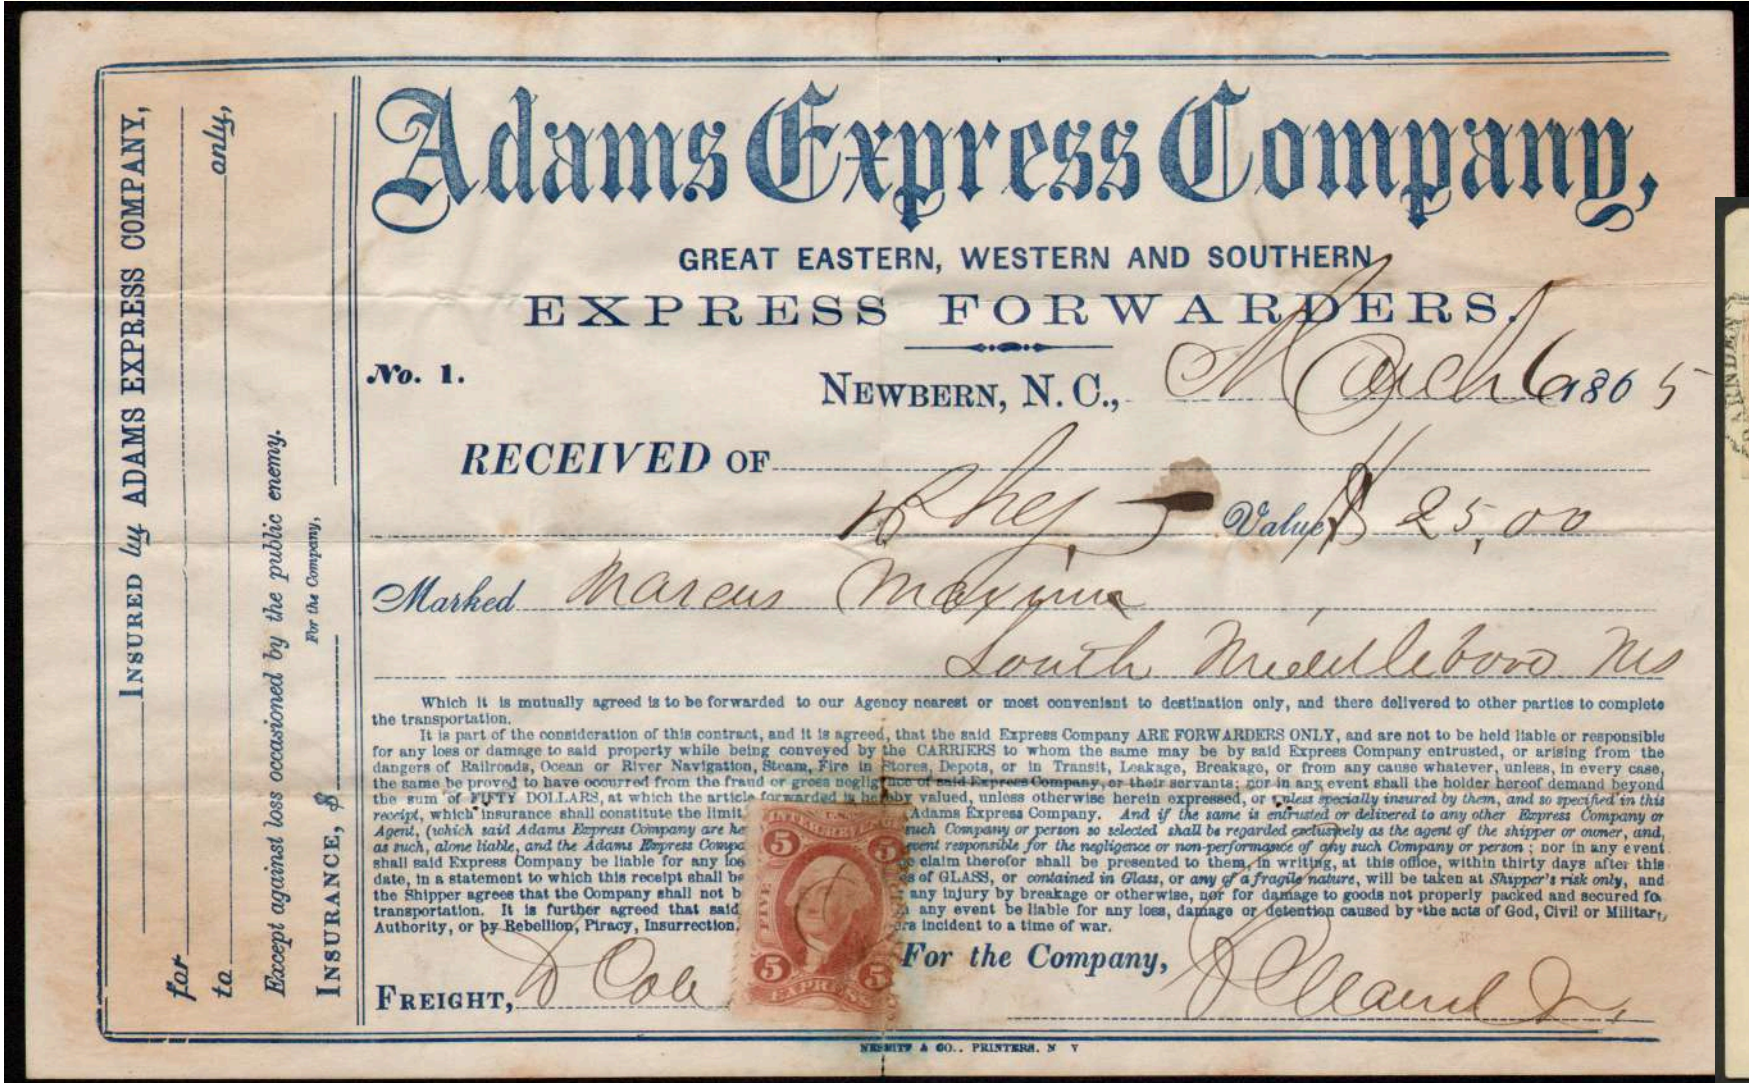 Adams Express Company,
GREAT EASTERN, WESTERN AND SOUTHERN
EXPRESS FORWARDERS.
No. 1.
NEWBERN, N. C., March 6 1865
RECEIVED OF
Value, $ 25,00
Marked Marcus Maxim
South Middleboro Ms
Which it is mutually agreed is to be forwarded to our Agency nearest or most convenient to destination only, and there delivered to other parties to complete
the transportation.
It is part of the consideration of this contract, and it is agreed, that the said Express Company ARE FORWARDERS ONLY, and are not to be held liable or responsible
for any loss or damage to said property while being conveyed by the CARRIERS to whom the same may be by said Express Company entrusted, or arising from the
dangers of Railroads, Ocean or River Navigation, Steam, Fire in Stores, Depots, or in Transit, Leakage, Breakage, or from any cause whatever, unless, in every case,
the same be proved to have occurred from the fraud or gross negligence of said Express Company, or their servants; nor in any event shall the holder hereof demand beyond
the sum of FIFTY DOLLARS, at which the article forwarded is hereby valued, unless otherwise herein expressed, or unless specially insured by them, and so specified in this
receipt, which insurance shall constitute the limit Adams Express Company. And if the same is entrusted or delivered to any other Express Company or
Agent, (which said Adams Express Company are he such Company or person so selected shall be regarded exclusively as the agent of the shipper or owner, and,
as such, alone liable, and the Adams Express Compa event responsible for the negligence or non-performance of any such Company or person; nor in any event
shall said Express Company be liable for any los claim therefor shall be presented to them, in writing, at this office, within thirty days after this
date, in a statement to which this receipt shall be s of GLASS, or contained in Glass, or any of a fragile nature, will be taken at Shipper's risk only, and
the Shipper agrees that the Company shall not b any injury by breakage or otherwise, nor for damage to goods not properly packed and secured fo
transportation. It is further agreed that said any event be liable for any loss, damage or detention caused by the acts of God, Civil or Military
Authority, or by Rebellion, Piracy, Insurrection, rs incident to a time of war.
For the Company,
FREIGHT, D Coll
5 5
FIVE
5 5
EXPRESS
NESBITT & CO., PRINTERS. N Y
INSURED by ADAMS EXPRESS COMPANY,
for
to only,
Except against loss occasioned by the public enemy.
For the Company,
INSURANCE, $